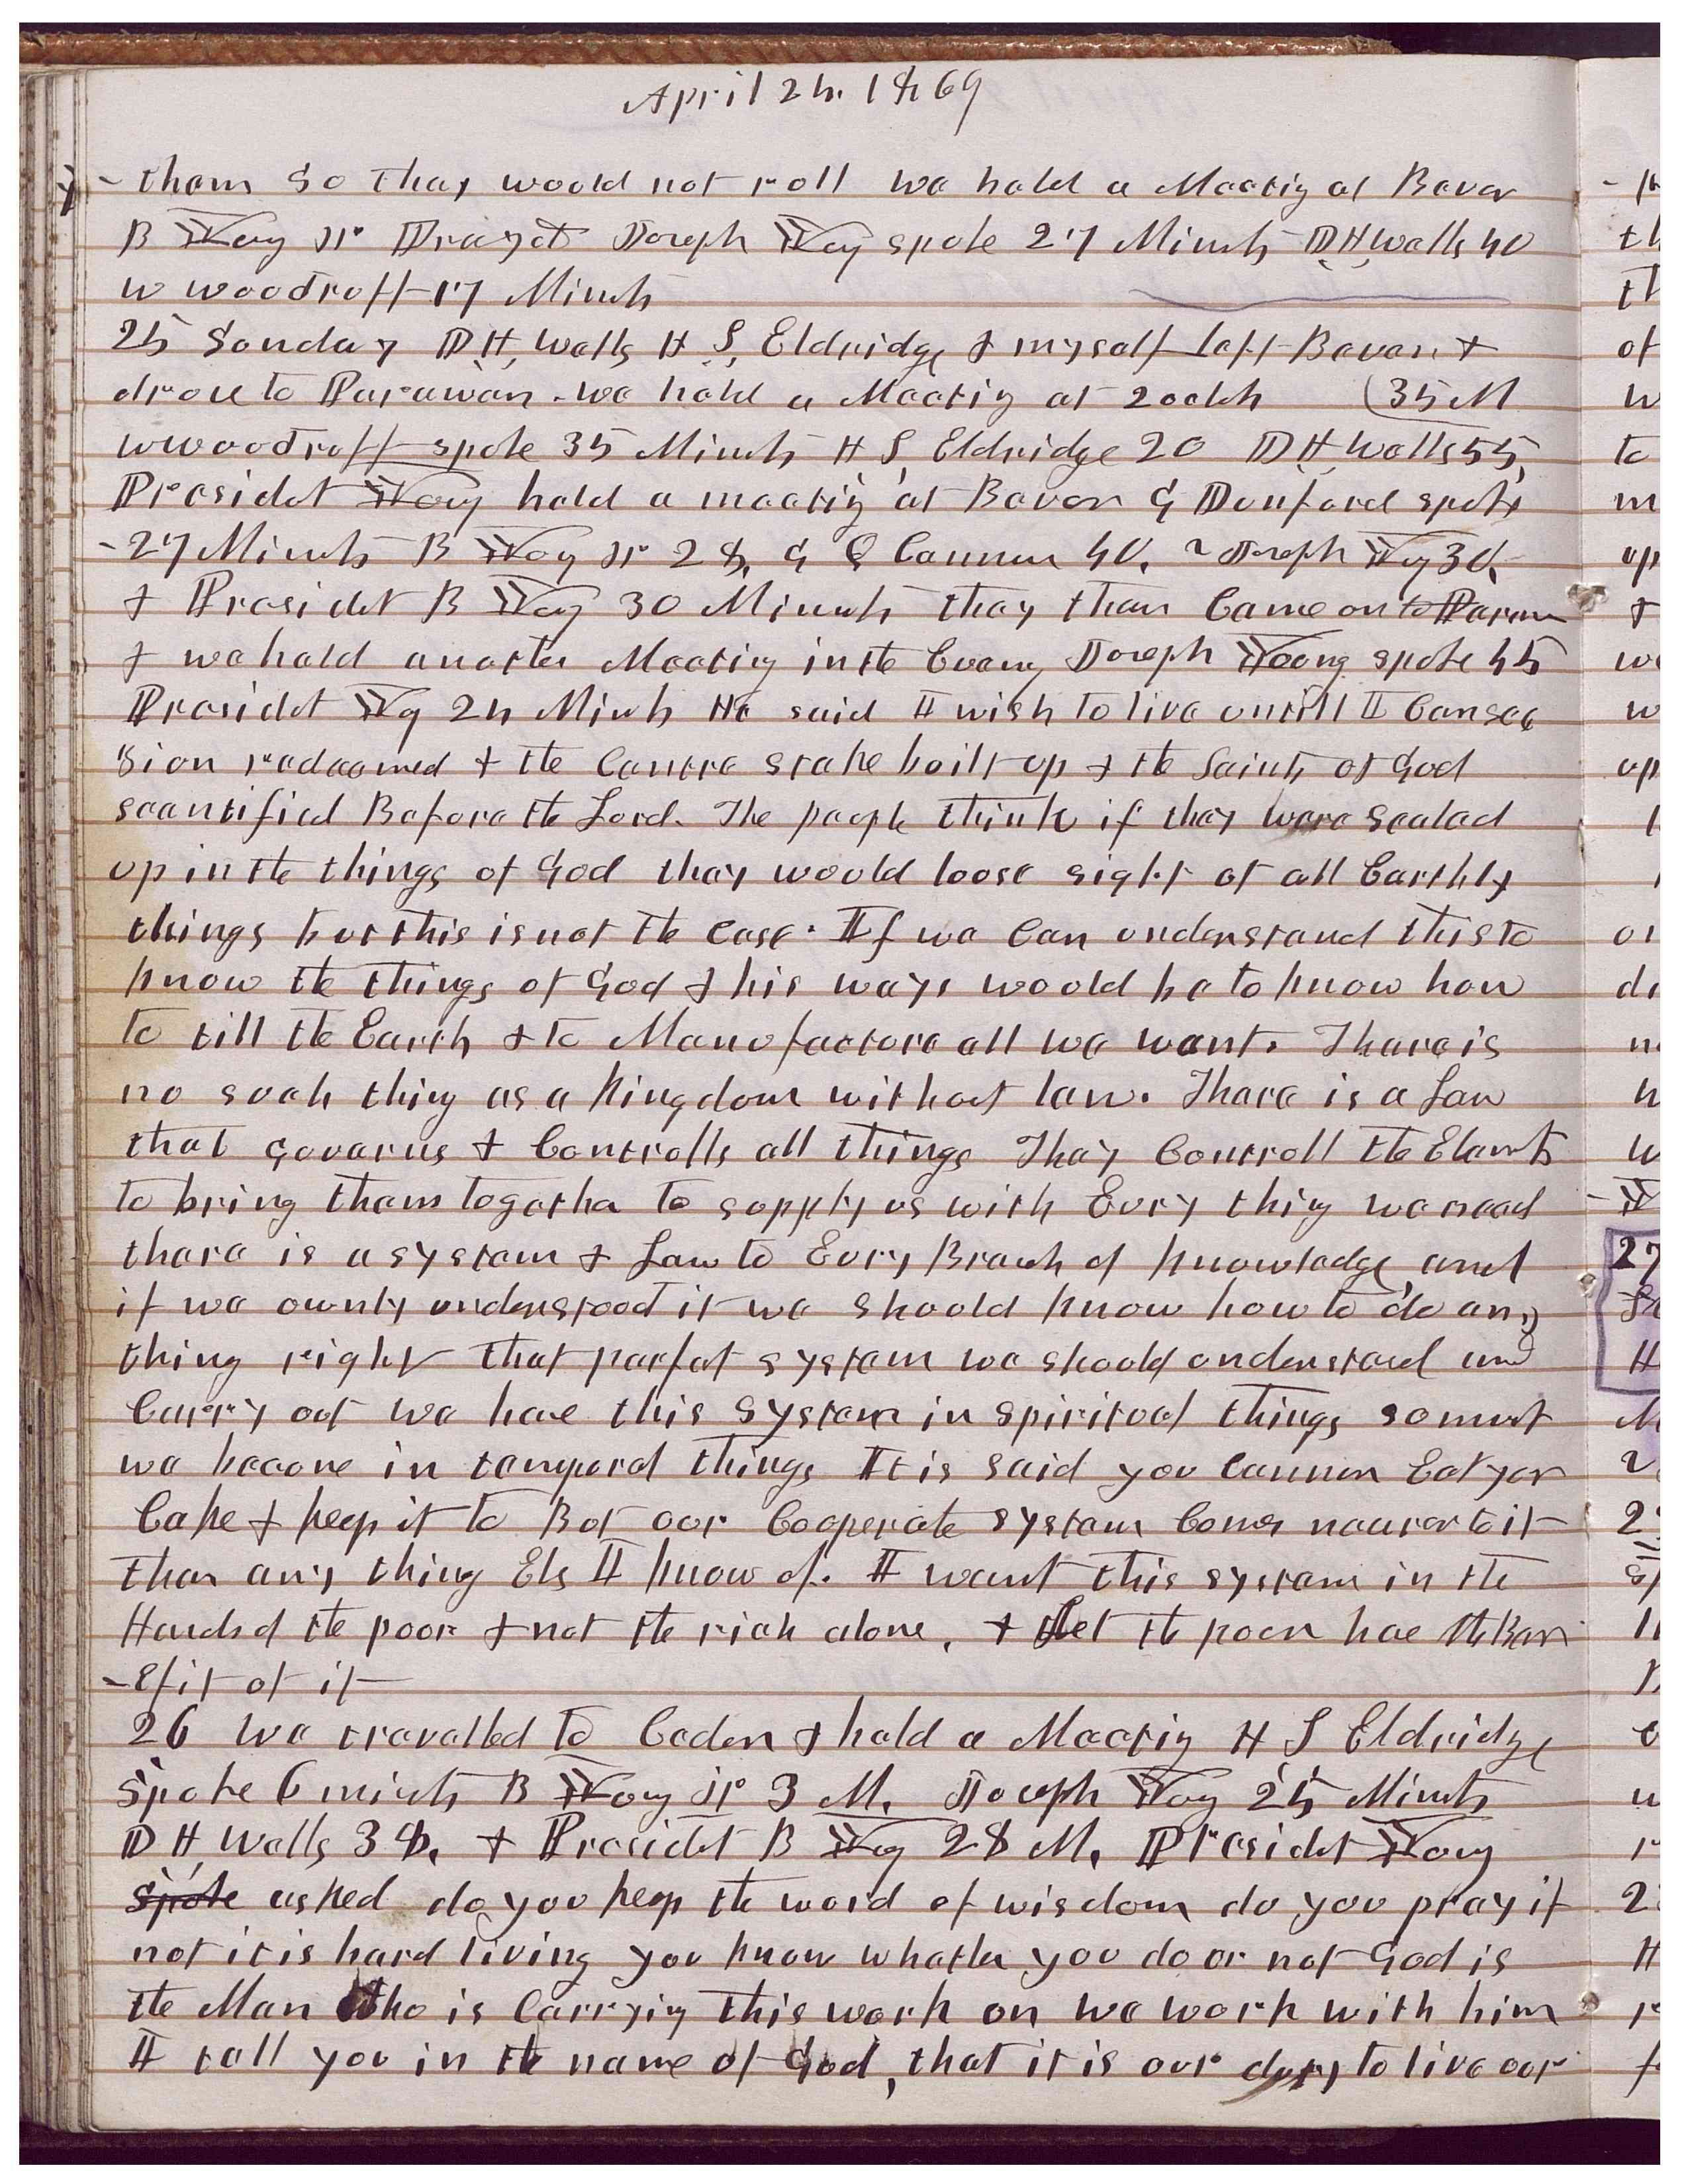 April 24. 1869
- them so they would not roll we held a Meetig at Bever
B Yog Jr Prayed Joseph Yog spoke 27 Minuts D H, Wells 40
W Woodruff 17 Minuts
25 Sunday D H, Wells H S, Eldridge & myself left Bever &
drove to Parawan. we held a Meetig at 2 oclok (35 M
W Woodruff spoke 35 Minuts H S, Eldridge 20 D H, Wells 55,
Presidet Yog held a meetig at Bever G Dunford spoke
-27 Minuts B Yog Jr 28, G Q Cannon 40, Joseph Yg 30,
& Presidet B Yog 30 Minuts they then Came on to Parown
& we held anothr Meetig in the Eveng Joseph Yoong spoke 45
Presidet Yg 24 Minuts He said I wish to live untill I Can see
Zion redeemed & the Centre stake built up & the Saints of God
scantified Before the Lord. The people think if they were sealed
up in the things of God they would loose sight of all Earthly
things but this is not the Case. If we Can understand this to
know the things of God & his ways would be to know how
to till the Earth & to Manufacture all we want. There is
no such thing as a Kingdom without law. There is a Law
that governs & Controlls all things They Controll the Elemts
to bring them togethe to supply us with Evry thing we need
there is a system & Law to Evry Branch of knowledge and
if we ownly understood it we should know how to do any
thing right that perfet system we should understand and
Carry out we have this system in spiritual things so must
we become in temporal things It is said you Cannon Eat yor
Cake & keep it to But our Cooperate system Comes nearer to it
than any thing Els I know of. I want this system in the
Hands of the poor & not the rich alone, & Let the poor have the Ben
-efit of it
26 We travelled to Ceder & held a Meetig H S Eldridge
spoke 6 minuts B Yog Jr 3 M, Joseph Yog 25 Minuts
D H, Wells 38, & Presidet B Yog 28 M, Presidet Yog
spoke asked do you keep the word of wisdom do you pray if
not it is hard living you know whether you do or not God is
the Man Who is Carryig this work on we work with him
I tell you in the name of God, that it is our duty to live our